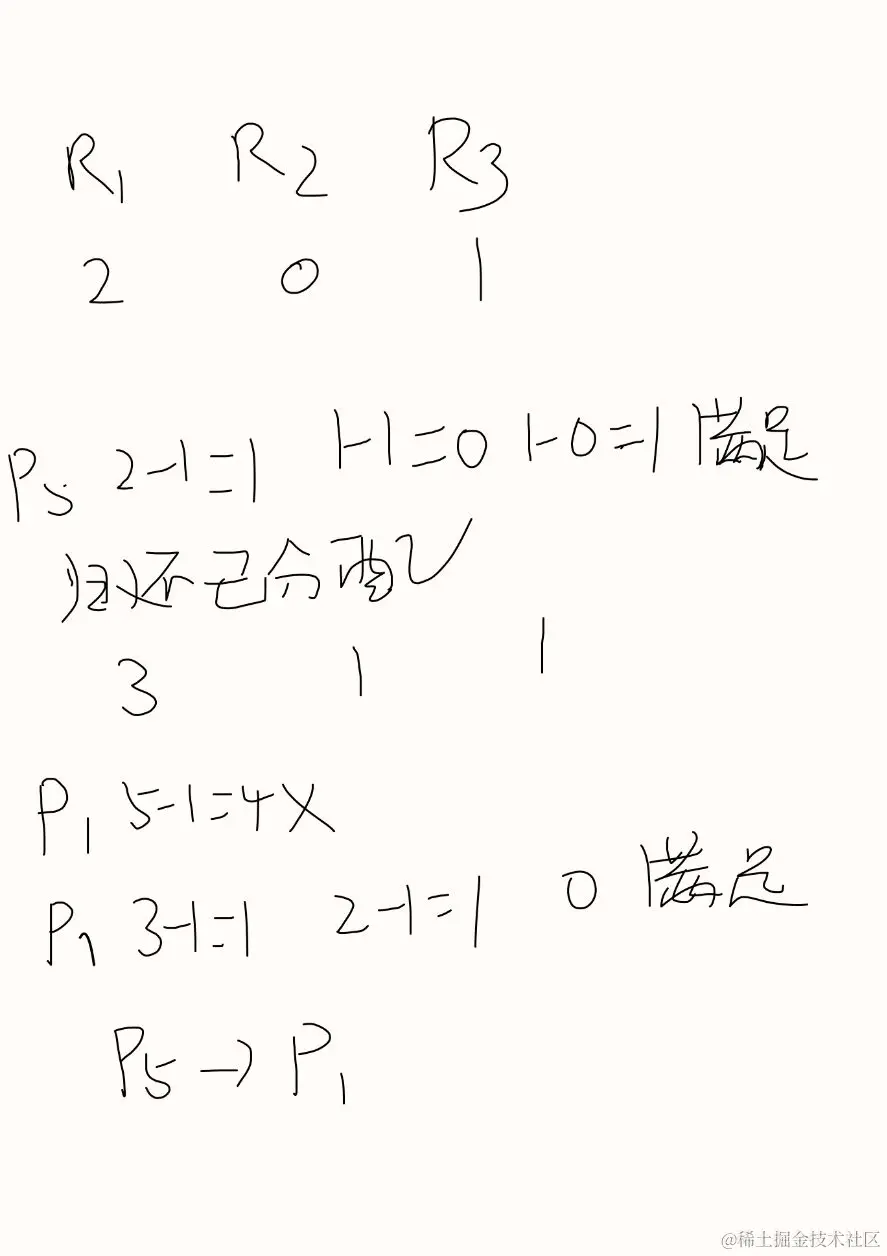 R1 R2 R3
2 0 1
P5 2-1=1 1-1=0 1-0=1 满足
归还已分配
3 1 1
P1 5-1=4X
P1 3-1=1 2-1=1 0 满足
P5→P1
@稀土掘金技术社区